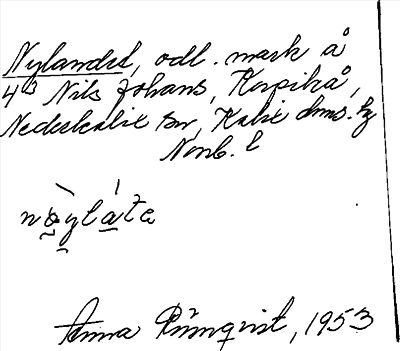 Nylandet, odl. mark å
4³ Nils Johans, Korpikå,
Nederkalix sn, Kalix dms. hg
Norrb. l
nø̀yláta
Anna Rönnqvist, 1953